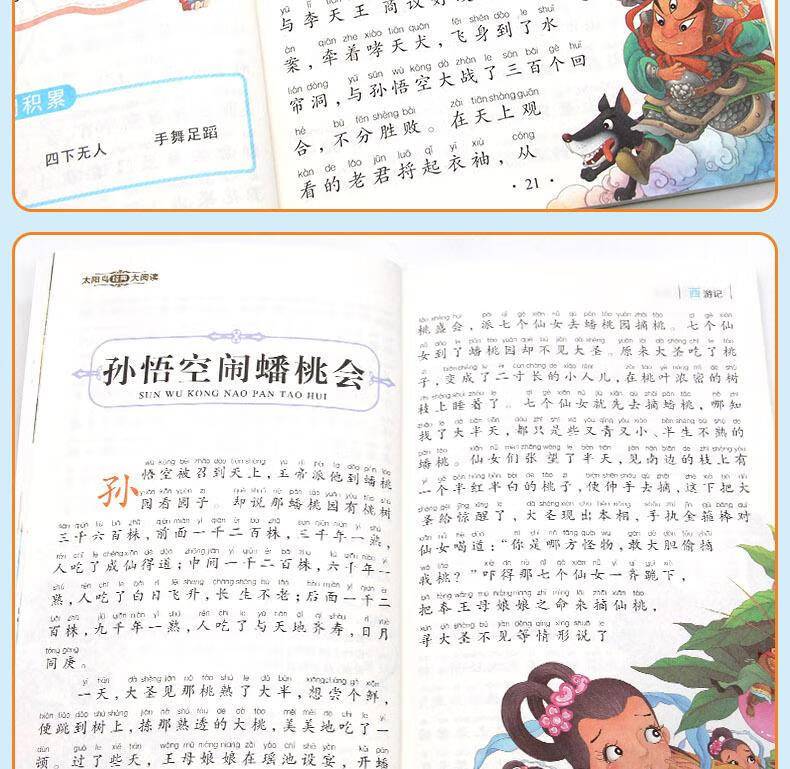 与李天王商议好
案，牵着哮天犬，飞身到了水
帘洞，与孙悟空大战了三百个回
合，不分胜败。在天上观
看的老君捋起衣袖，从
·21·
积累
四下无人 手舞足蹈
太阳鸟经典大阅读
孙悟空闹蟠桃会
SUN WU KONG NAO PAN TAO HUI
孙悟空被召到天上，玉帝派他到蟠桃
园看园子。却说那蟠桃园有桃树
三千六百株，前面一千二百株，三千年一熟，
人吃了成仙得道；中间一千二百株，六千年一
熟，人吃了白日飞升，长生不老；后面一千二
百株，九千年一熟，人吃了与天地齐寿，日月
同庚。
一天，大圣见那桃熟了大半，想尝个鲜，
便跳到树上，拣那熟透的大桃，美美地吃了一
顿。过了些天，王母娘娘在瑶池设宴，开蟠
西游记
桃盛会，派七个仙女去蟠桃园摘桃。七个仙
女到了蟠桃园却不见大圣。原来大圣吃了桃
子，变成了二寸长的小人儿，在桃叶浓密的树
枝上睡着了。七个仙女就先去摘蟠桃，哪知
找了大半天，都只是些又青又小、半生不熟的
蟠桃。仙女们张望了半天，见南边的枝上有
一个半红半白的桃子，使伸手去摘，这下把大
圣给惊醒了，大圣现出本相，手执金箍棒对
仙女喝道：“你是哪方怪物，敢大胆偷摘
我桃？”吓得那七个仙女一齐跪下，
把奉王母娘娘之命来摘仙桃，
寻大圣不见等情形说了